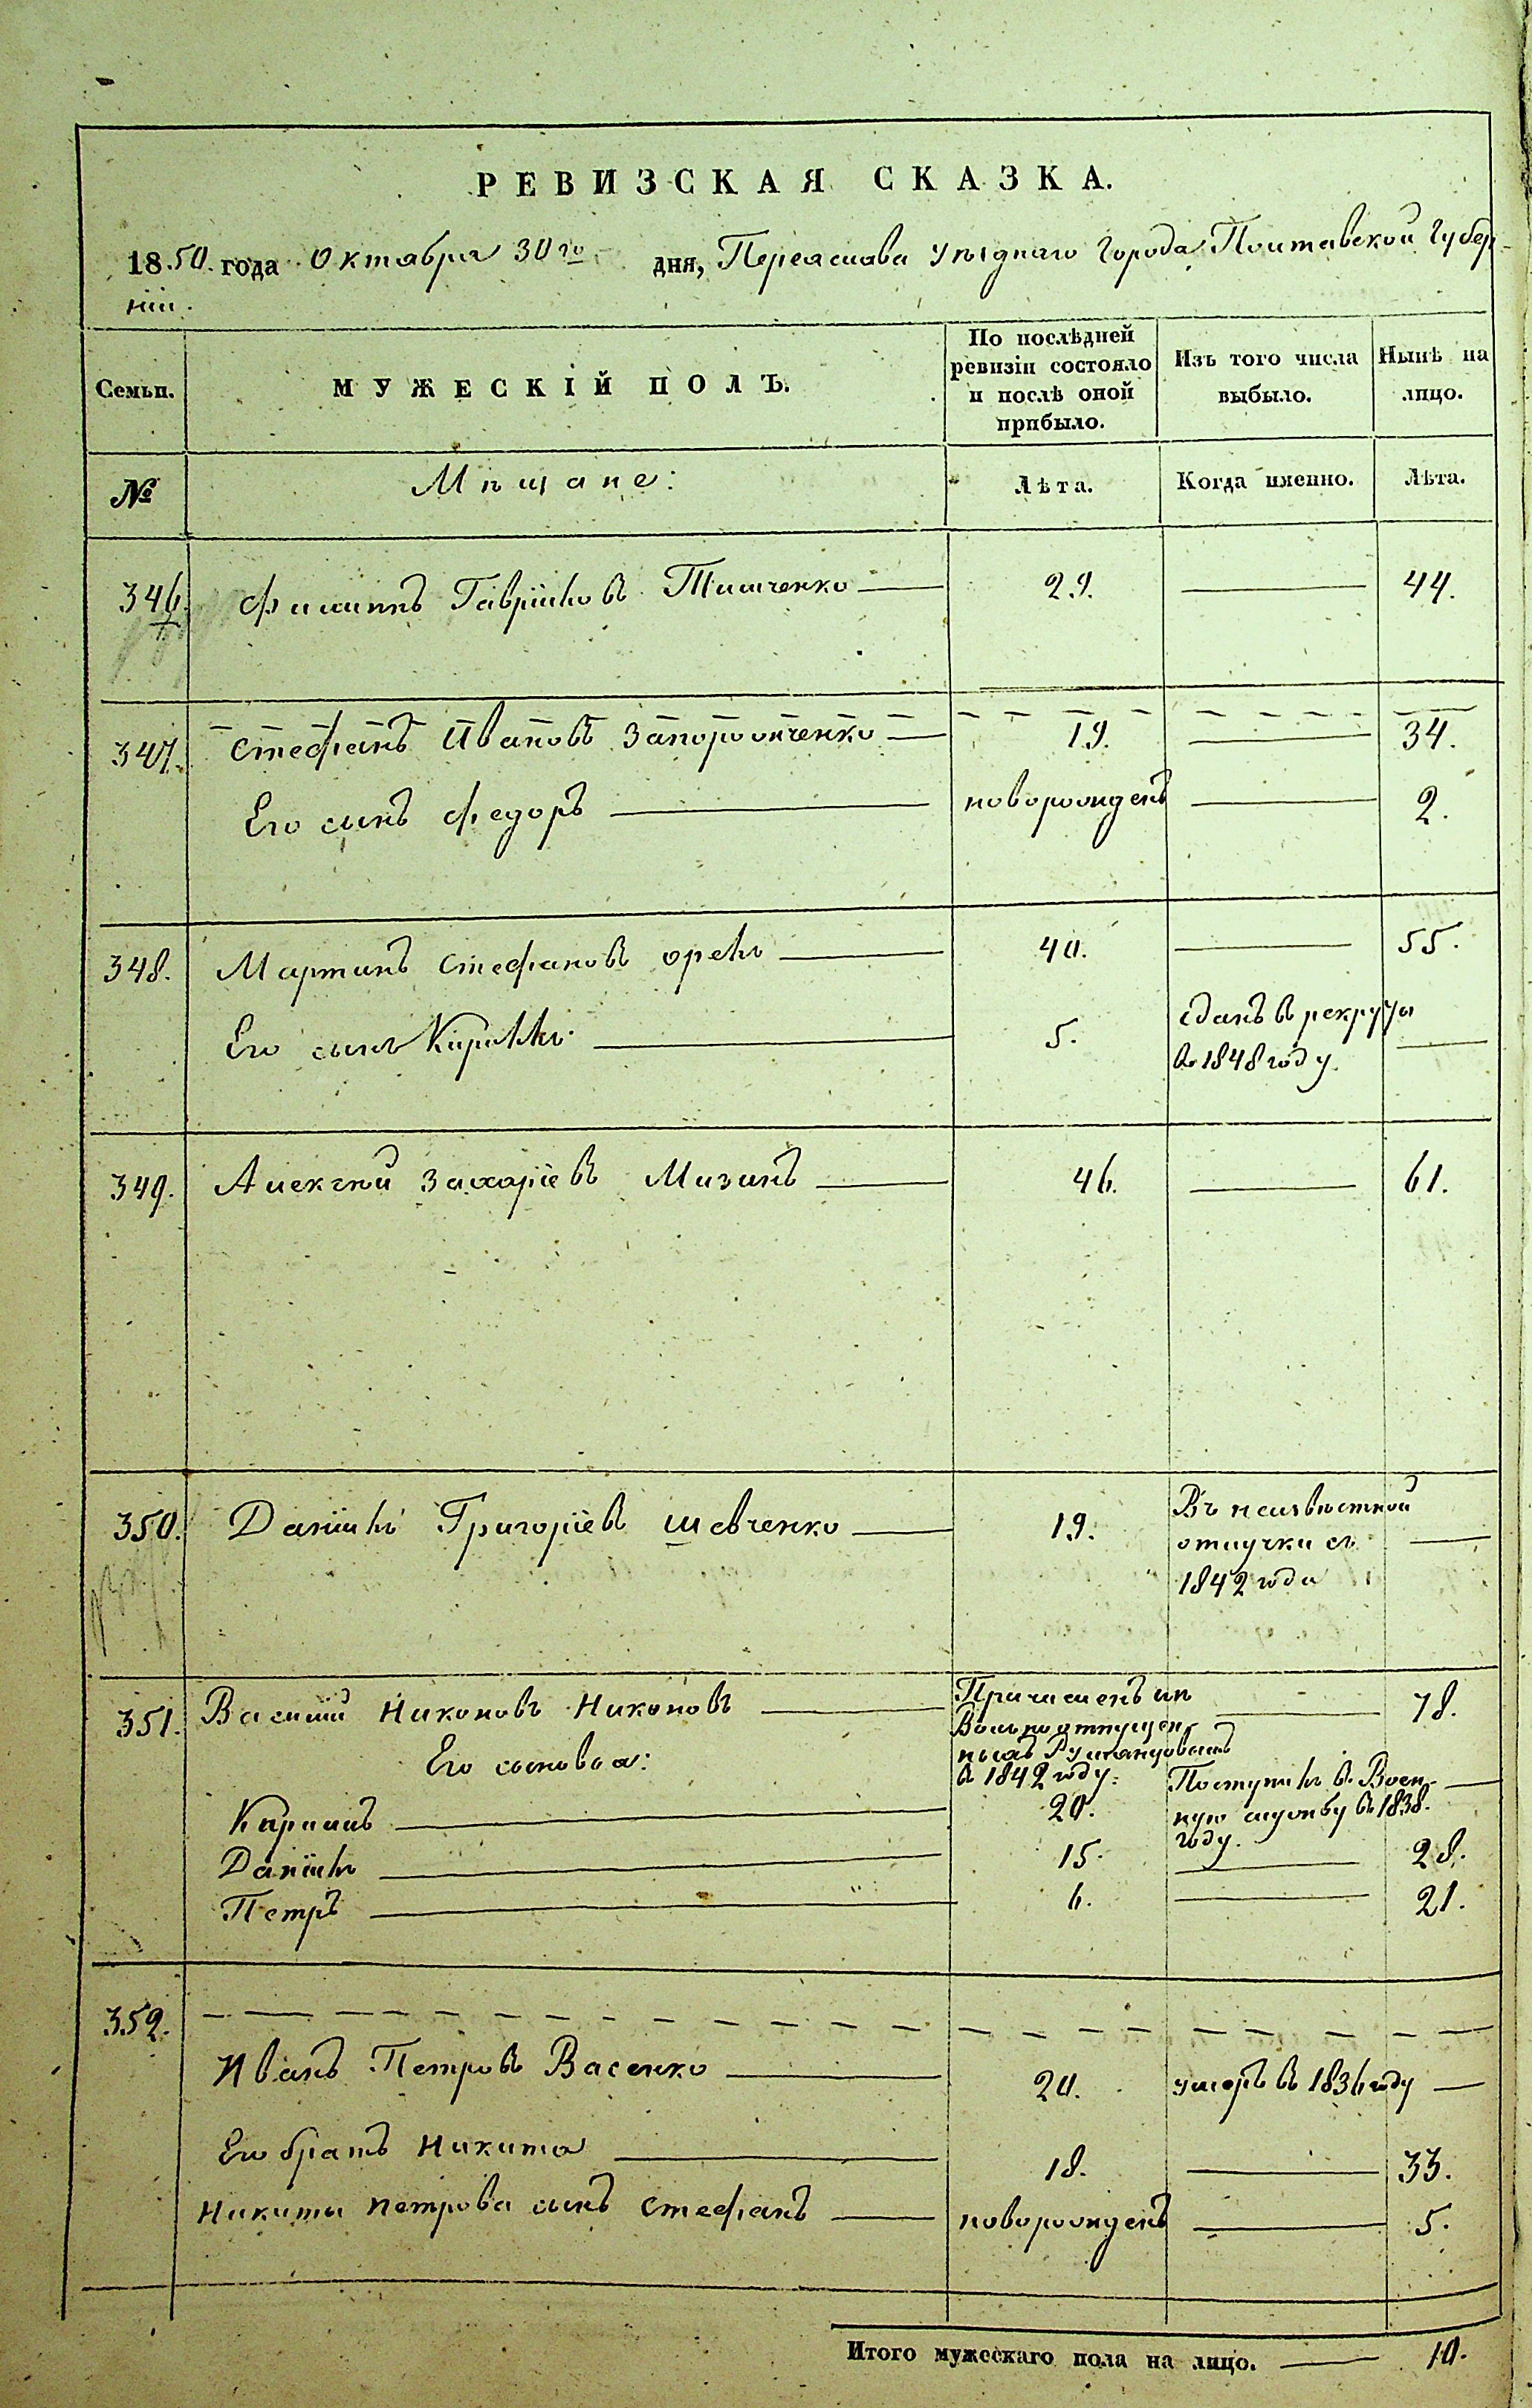 РЕВИЗСКАЯ СКАЗКА.
1850. года Октября 30го дня, Переяслава уѣзднаго города, Полтавской Губер-
ніи.
Семьи. МУЖЕСКІЙ ПОЛЪ. По послѣдней ревизіи состояло и послѣ оной прибыло. Изъ того числа выбыло. Нынѣ на лицо.
№ Мѣщане: Лѣта. Когда именно. Лѣта.
346. Филиппъ Гавріиловъ Тимченко 29. 44.
347. Стефанъ Ивановъ Запорожченко 19. 34.
Его сынъ Федоръ новорожденъ 2.
348. Мартинъ Стефановъ Орелъ 40. 55.
Его сынъ Кирилъ 5. сданъ въ рекруты
въ 1848 году.
349. Алексѣй Захаріевъ Мизинъ 46. 61.
350. Даніилъ Григоріевъ Шевченко 19. Въ неизвѣстной
отлучки съ
1842 года
351. Василій Никоновъ Никоновъ Причисленъ изъ 78.
вольноотпущен
ныхъ Румянцовыхъ
Его сыновья: в 1842 году.
Кирилъ 20. Поступилъ въ Воен-
ную службу въ 1838.
году.
Даніилъ 15. 28.
Петръ 6. 21.
352.
Иванъ Петровъ Васенко 20. умеръ въ 1836 году
Его братъ Никита 18. 33.
Никиты Петрова сынъ Стефанъ новорожденъ 5.
Итого мужескаго пола на лицо. 10.